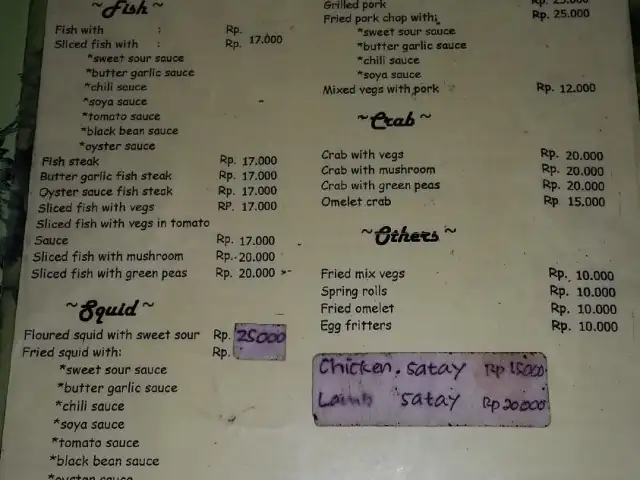 ~Fish~
Fish with : Rp.
Sliced fish with : Rp. 17.000
*sweet sour sauce
*butter garlic sauce
*chili sauce
*soya sauce
*tomato sauce
*black bean sauce
*oyster sauce
Fish steak Rp. 17.000
Butter garlic fish steak Rp. 17.000
Oyster sauce fish steak Rp. 17.000
Sliced fish with vegs RP. 17.000
Sliced fish with vegs in tomato
Sauce Rp. 17.000
Sliced fish with mushroom Rp. 20.000
Sliced fish with green peas Rp. 20.000
~Squid~
Floured squid with sweet sour Rp. 25000
Fried squid with: Rp.
*sweet sour sauce
*butter garlic sauce
*chili sauce
*soya sauce
*tomato sauce
*black bean sauce
*oyster sauce
Grilled pork Rp. 25.000
Fried pork chop with: Rp. 25.000
*sweet sour sauce
*butter garlic sauce
*chili sauce
*soya sauce
Mixed vegs with pork Rp. 12.000
~Crab~
Crab with vegs Rp. 20.000
Crab with mushroom Rp. 20.000
Crab with green peas Rp. 20.000
Omelet crab Rp 15.000
~Others~
Fried mix vegs Rp. 10.000
Spring rolls Rp. 10.000
Fried omelet Rp. 10.000
Egg fritters Rp. 10.000
Chicken. satay Rp 15000
Lamb satay Rp 20000